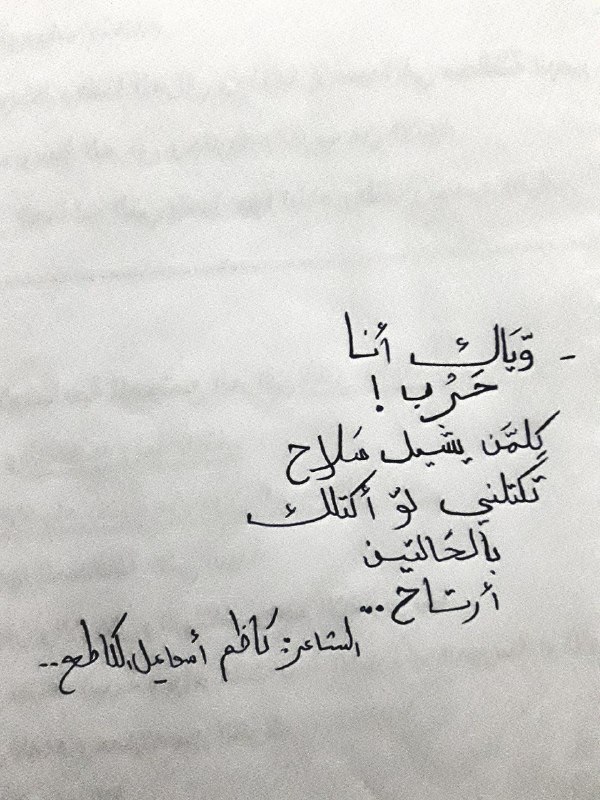 - وّيَاك أنا
حَرُب !
كِلمَّن يشَيل سَلاح
تَكتلني لوّ أكتلك
بالحَالتين
أرتاح...
الشاعر: كاظم أسماعيل الكاطع..